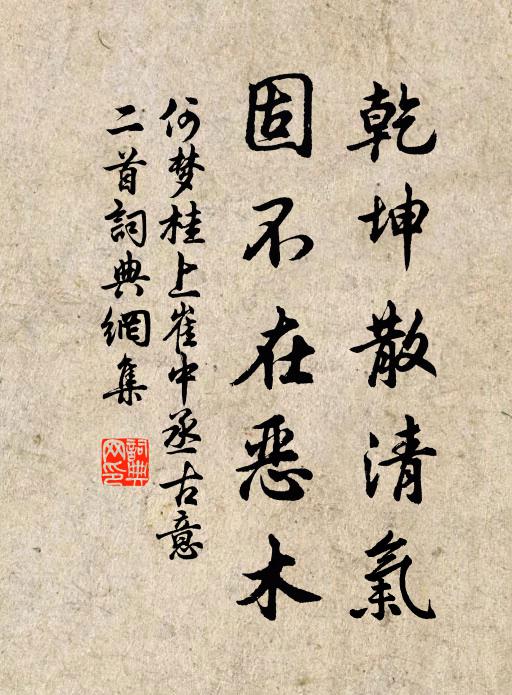 乾坤散清氣
固不在恶木
何梦桂上崔中丞古意
二首詞典網集
詞典网印